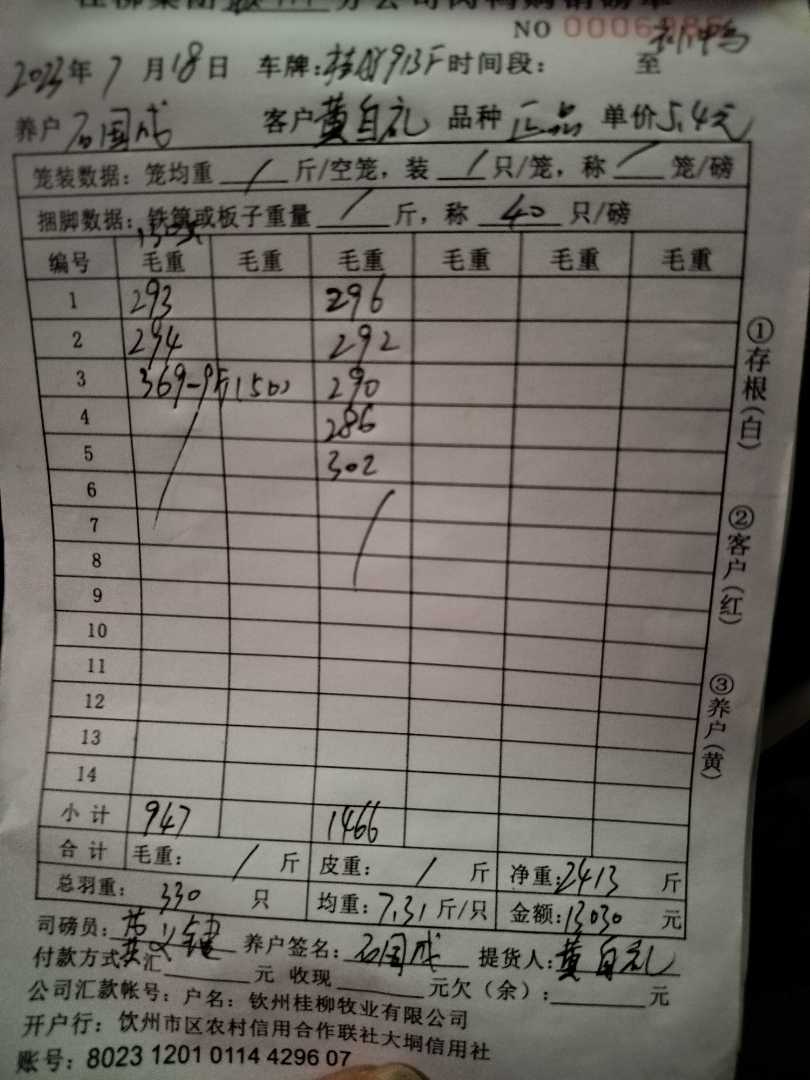 分公司肉鸭购销磅单
NO 0006985
2023年7月18日 车牌: 913F 时间段: 至
养户 石国成 客户 黄自礼 品种 正品 单价5.4元
笼装数据: 笼均重 / 斤/空笼, 装 / 只/笼, 称 / 笼/磅
捆脚数据: 铁筐或板子重量 / 斤, 称 40 只/磅
编号 毛重 毛重 毛重 毛重 毛重 毛重
1 293 296
2 294 292
3 369-9斤(50) 290
4 286
5 302
6
7
8
9
10
11
12
13
14
小计 947 1466
合计 毛重: / 斤 皮重: / 斤 净重:2413 斤
总羽重: 330 只 均重:7.31斤/只 金额:13030 元
司磅员: 养户签名: 石国成 提货人: 黄自礼
付款方式: 汇 元 收现 元欠(余): 元
公司汇款帐号: 户名: 钦州桂柳牧业有限公司
开户行: 钦州市区农村信用合作联社大垌信用社
账号: 8023 1201 0114 4296 07
①存根(白)
②客户(红)
③养户(黄)